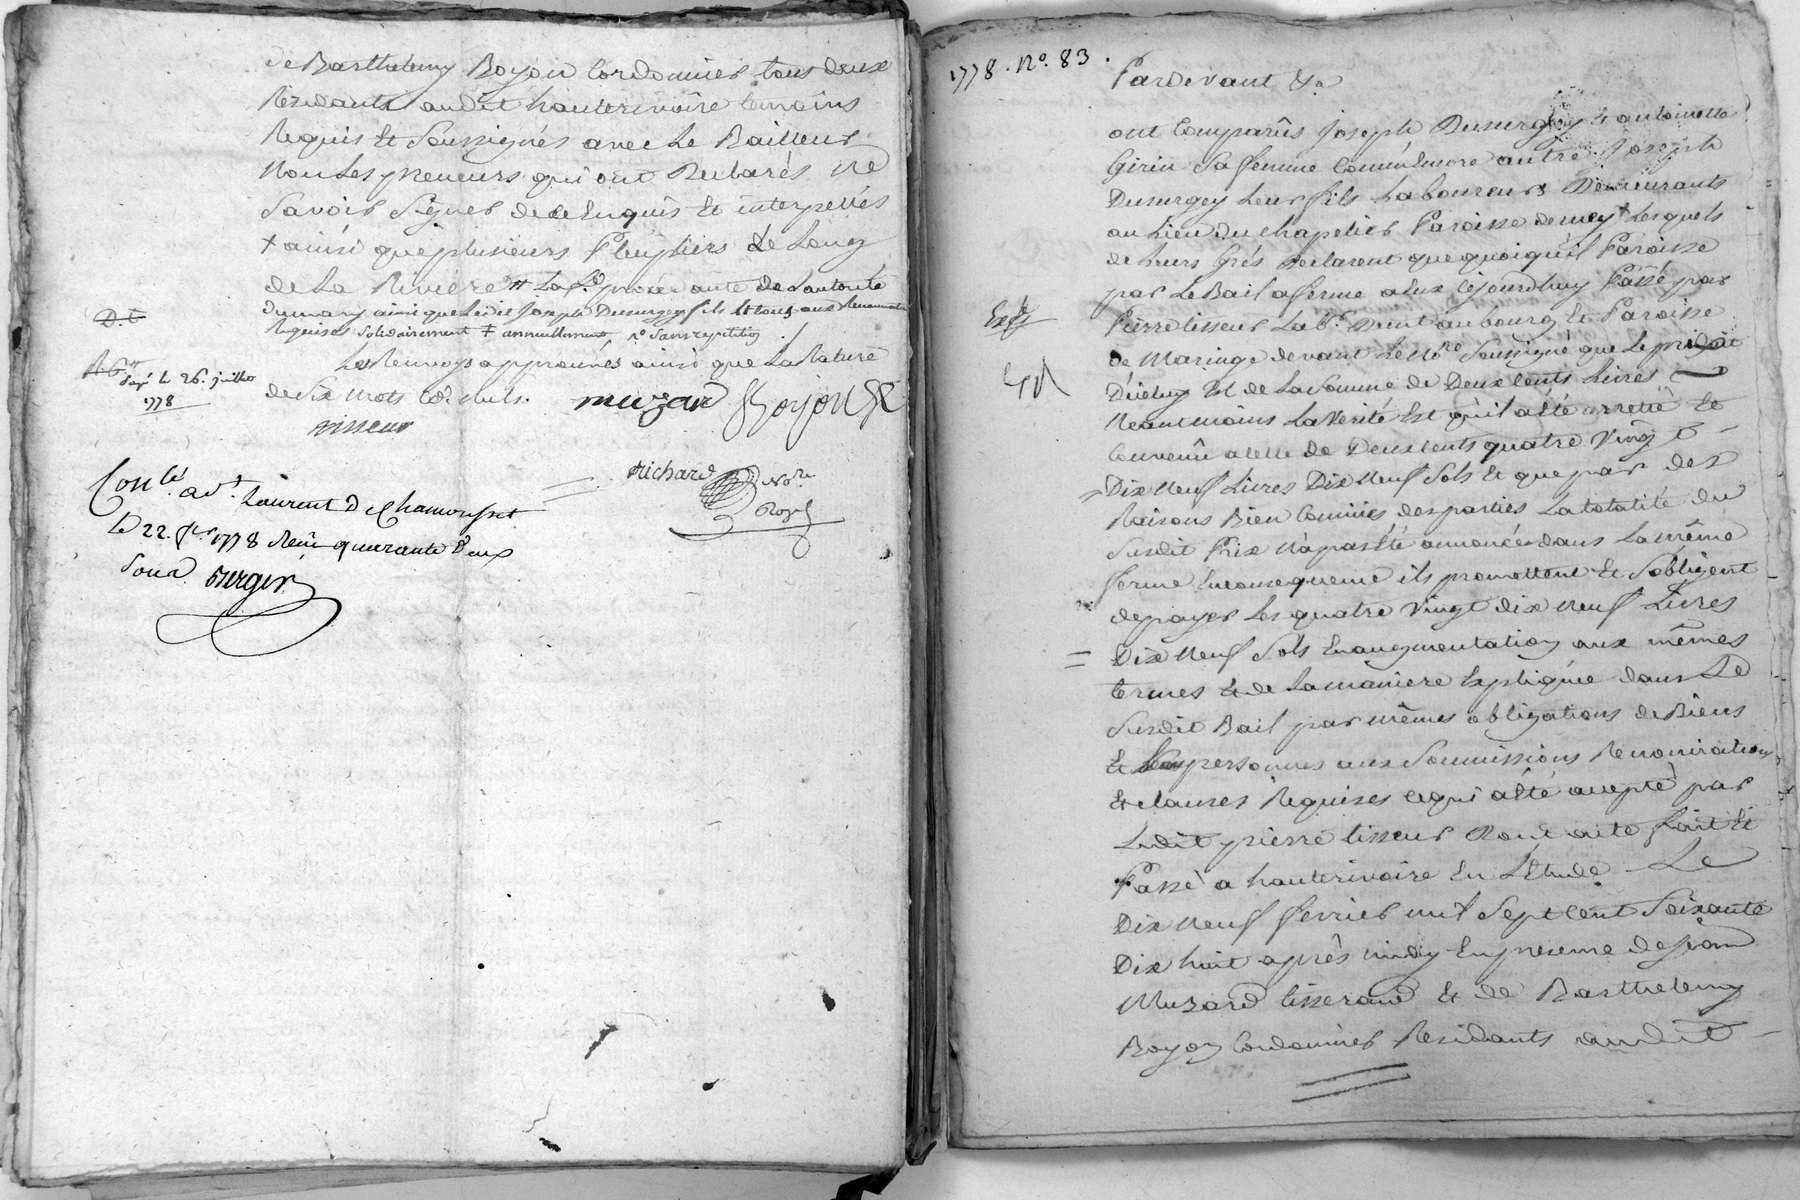 de Barthelemy Boyon Cordonnier tous deux
Residants audit hauterivoire temoins
Requis Et Soussignés avec Le Bailleur
Non Les preneurs qui ont Declarés Ne
Savoir Signer de ce Enquis Et interpellés
+ ainsi que plusieurs Peupliers Le Long
de La Riviere # La de. procédante de L'autorité
du mary ainsi que Ledit Joseph Dusurgey fils Et tous aux
Requises Solidairement ‡ annuellement, sans repetition
Les Renvoys approuvés ainsi que La Rature
de Six mots Co. nuls.
muzard Boyon
tisseur
Richard No.re
Royal
D. E
payé le 26. juillet
1778
Con.lé a St. Laurent De Chamousset
le 22. fer. 1778 Reçu quarante deux
sous. surgey
1778. No. 83.
Pardevant &a
ont Comparûs Joseph Dusurgey Et antoinette
Girin Sa femme Comme Encore autre Joseph
Dusurgey Leur fils Laboureurs Demeurants
au Lieu du chapelier Paroisse de mey + Lesquels
de Leurs Grés declarent que quoiqu'il Paroisse
par Le Bail a ferme a Eux cejourdhuy Passé par
Pierre tisseur Labr. demt. au bourg Et Paroisse
de Maringe devant Le No.re Soussigné que Le prix
D'icéluy Est de La Somme de Deux Cents Livres
Neantmoins La Verité Est qu'il a Eté arretté Et
Convenû a celle de Deux Cents quatre Vingt
Dix Neuf Livres Dix Neuf Sols Et que par des
Raisons Bien Connües des parties La totalité du
Susdit Prix N'a pas Eté annoncée dans La même
ferme En consequence ils promettent Et S'obligent
de payer Les quatre Vingt dix neuf Livres
Dix Neuf Sols En augmentation aux mêmes
termes Et de La maniere Expliquée dans Le
Susdit Bail par mêmes obligations de Biens
Et personnes aux Soumissions Renonciations
Et clauses Requises ce qui a Eté accepté par
Ledit pierre tisseur Dont acte fait Et
Passé a hauterivoire En L'Etude Le
Dix Neuf fevrier mil Sept Cent Soixante
Dix huit après midy En presence de Jean
Muzard tisserand Et de Barthelemy
Boyon Cordonnier Residants audit